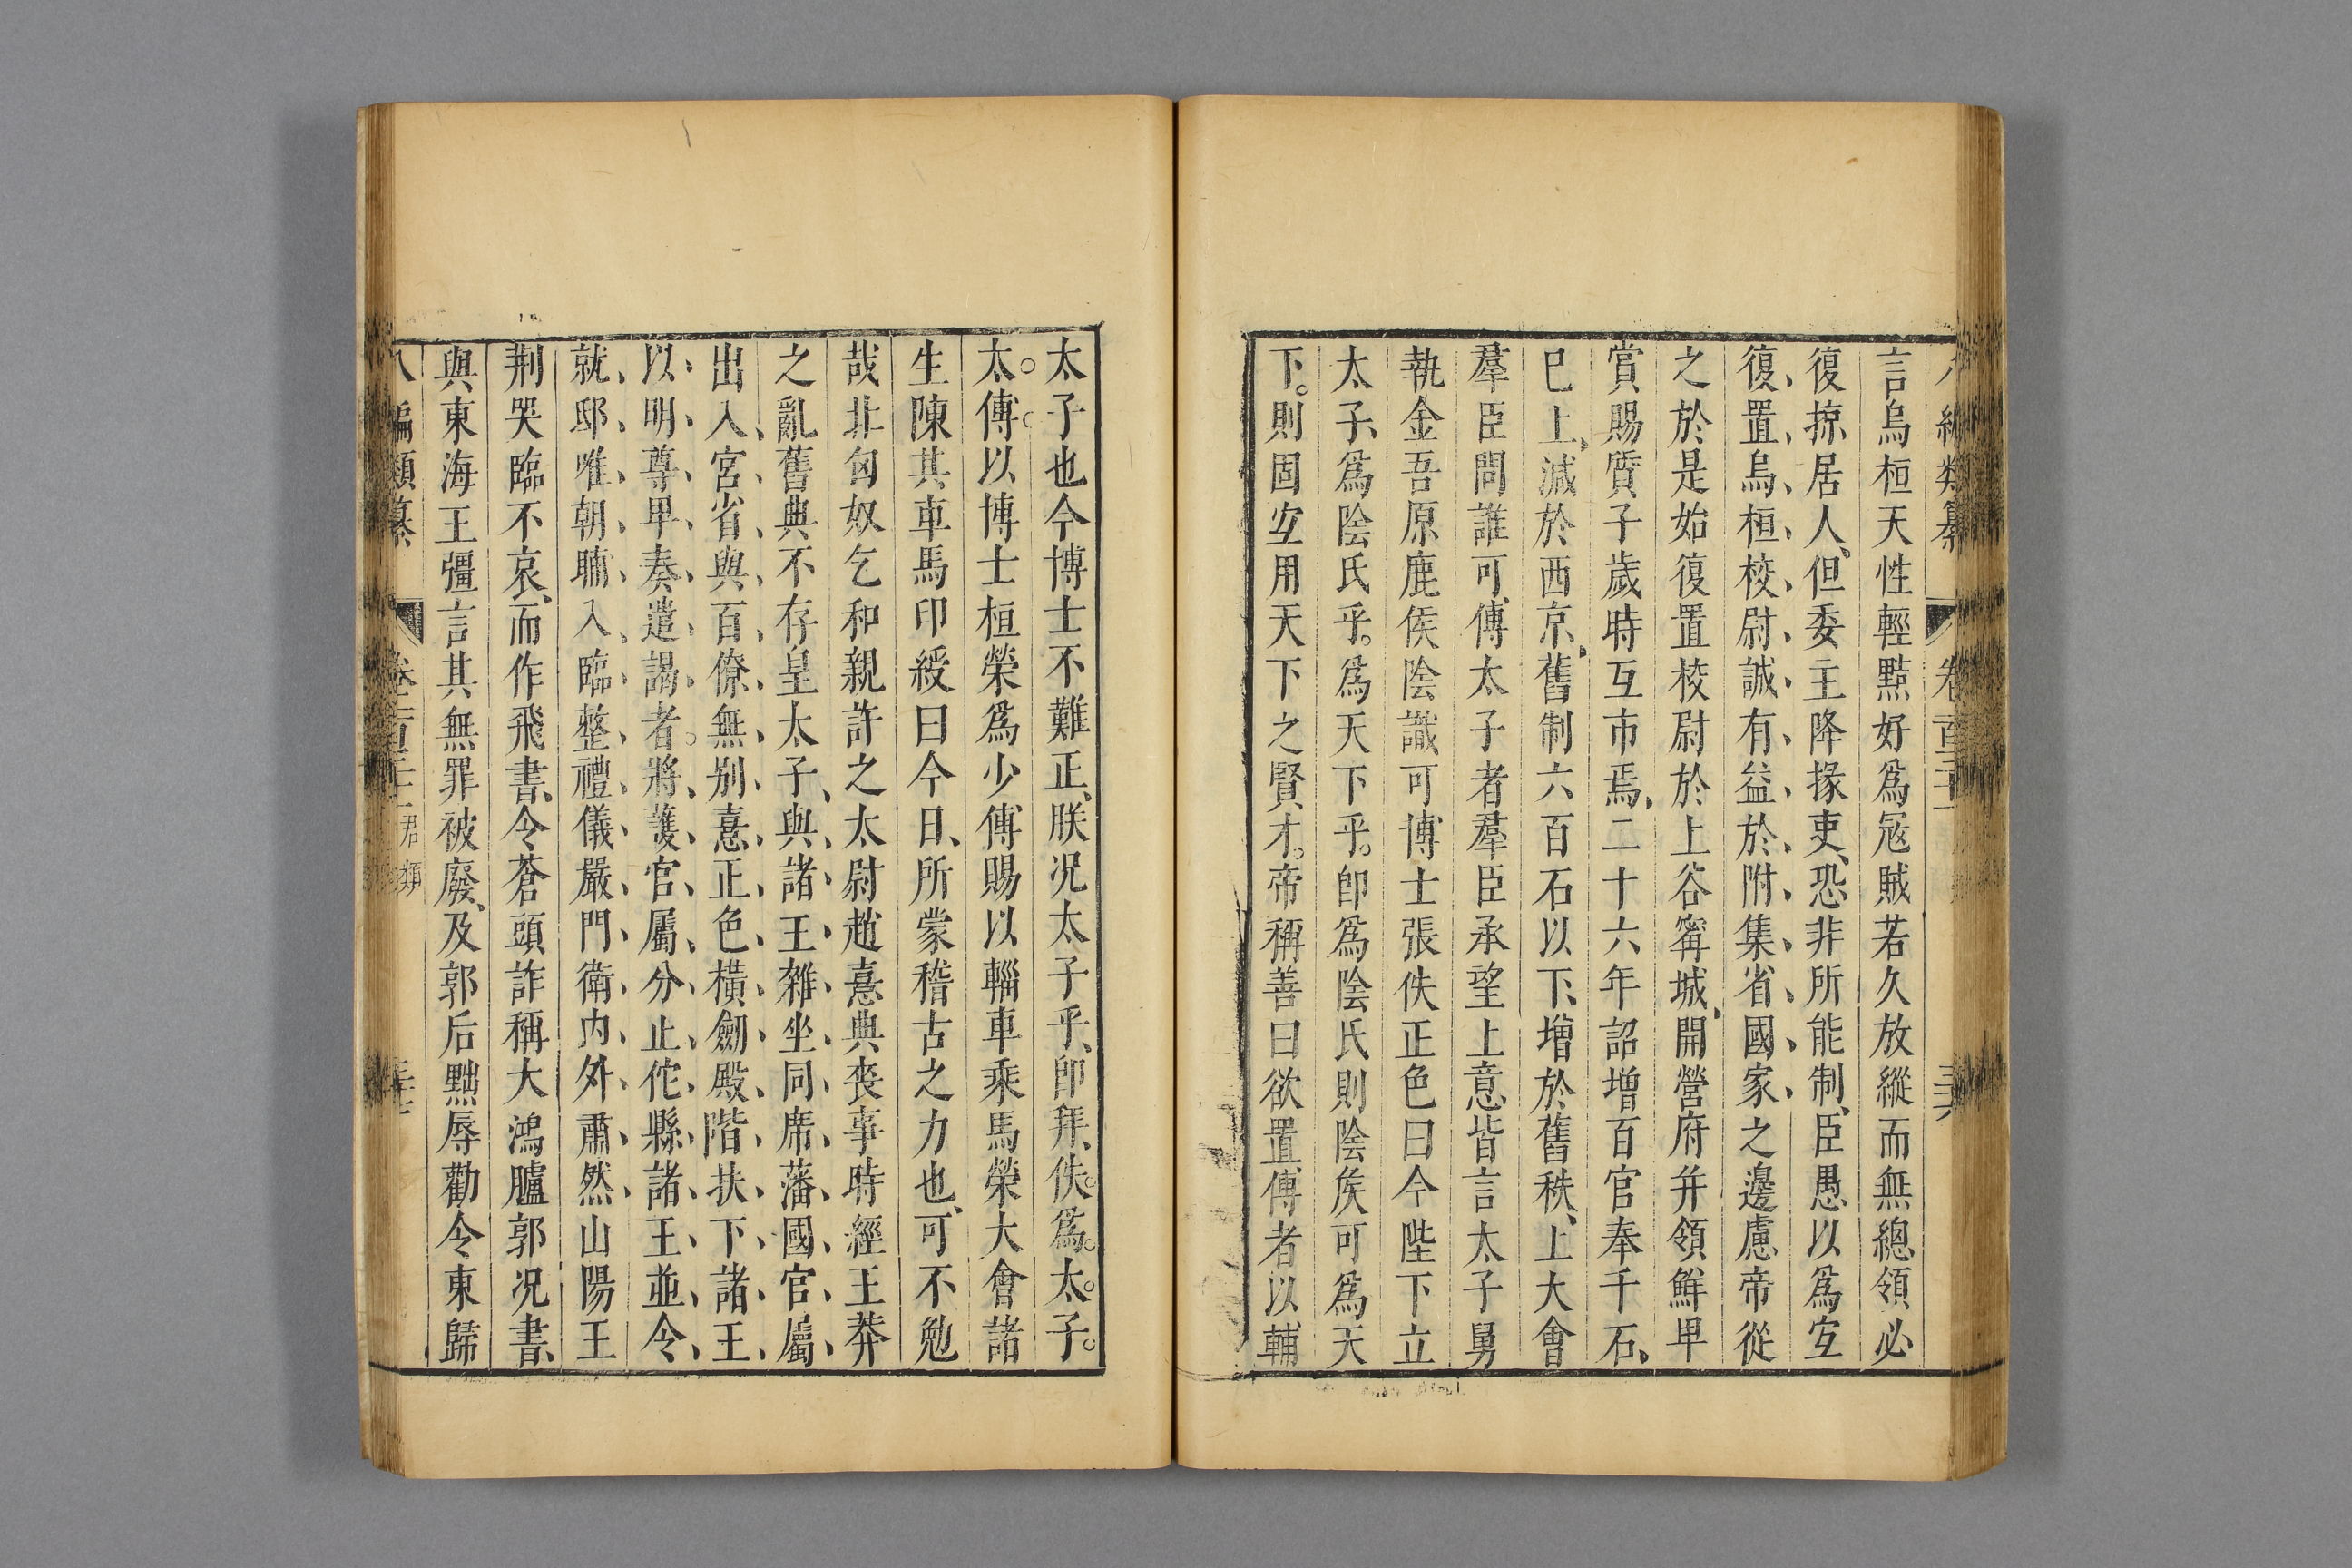 言烏桓天性輕黠好爲冦賊若久放縱而無總領必
復掠居人但委主降掾吏恐非所能制臣愚以爲宜
復置烏桓校尉誠有益於附集省國家之邊慮帝從
之於是始復置校尉於上谷寗城開營府并領鮮卑
賞賜質子歲時互市焉二十六年詔增百官奉千石
巳上減於西京舊制六百石以下增於舊秩上大會
羣臣問誰可傅太子者羣臣承望上意皆言太子舅
執金吾原鹿侯陰識可博士張佚正色曰今陛下立
太子爲陰氏乎爲天下乎即爲陰氏則陰矦可爲天
下則固宜用天下之賢才帝稱善曰欲置傅者以輔
太子也今博士不難正朕况太子乎即拜佚爲太子
太傅以博士桓榮爲少傅賜以輜車乘馬榮大會諸
生陳其車馬印綬曰今日所蒙稽古之力也可不勉
哉北匈奴乞和親許之太尉趙憙典喪事時經王莽
之亂舊典不存皇太子與諸王雜坐同席藩國官屬
出入宮省與百僚無别憙正色橫劒殿階扶下諸王
以明尊卑奏遣謁者將護官屬分止佗縣諸王並令
就邸唯朝晡入臨整禮儀嚴門衛内外肅然山陽王
荆哭臨不哀而作飛書令蒼頭詐稱大鴻臚郭况書
與東海王彊言其無罪被廢及郭后黜辱勸令東歸
八編類纂 君類